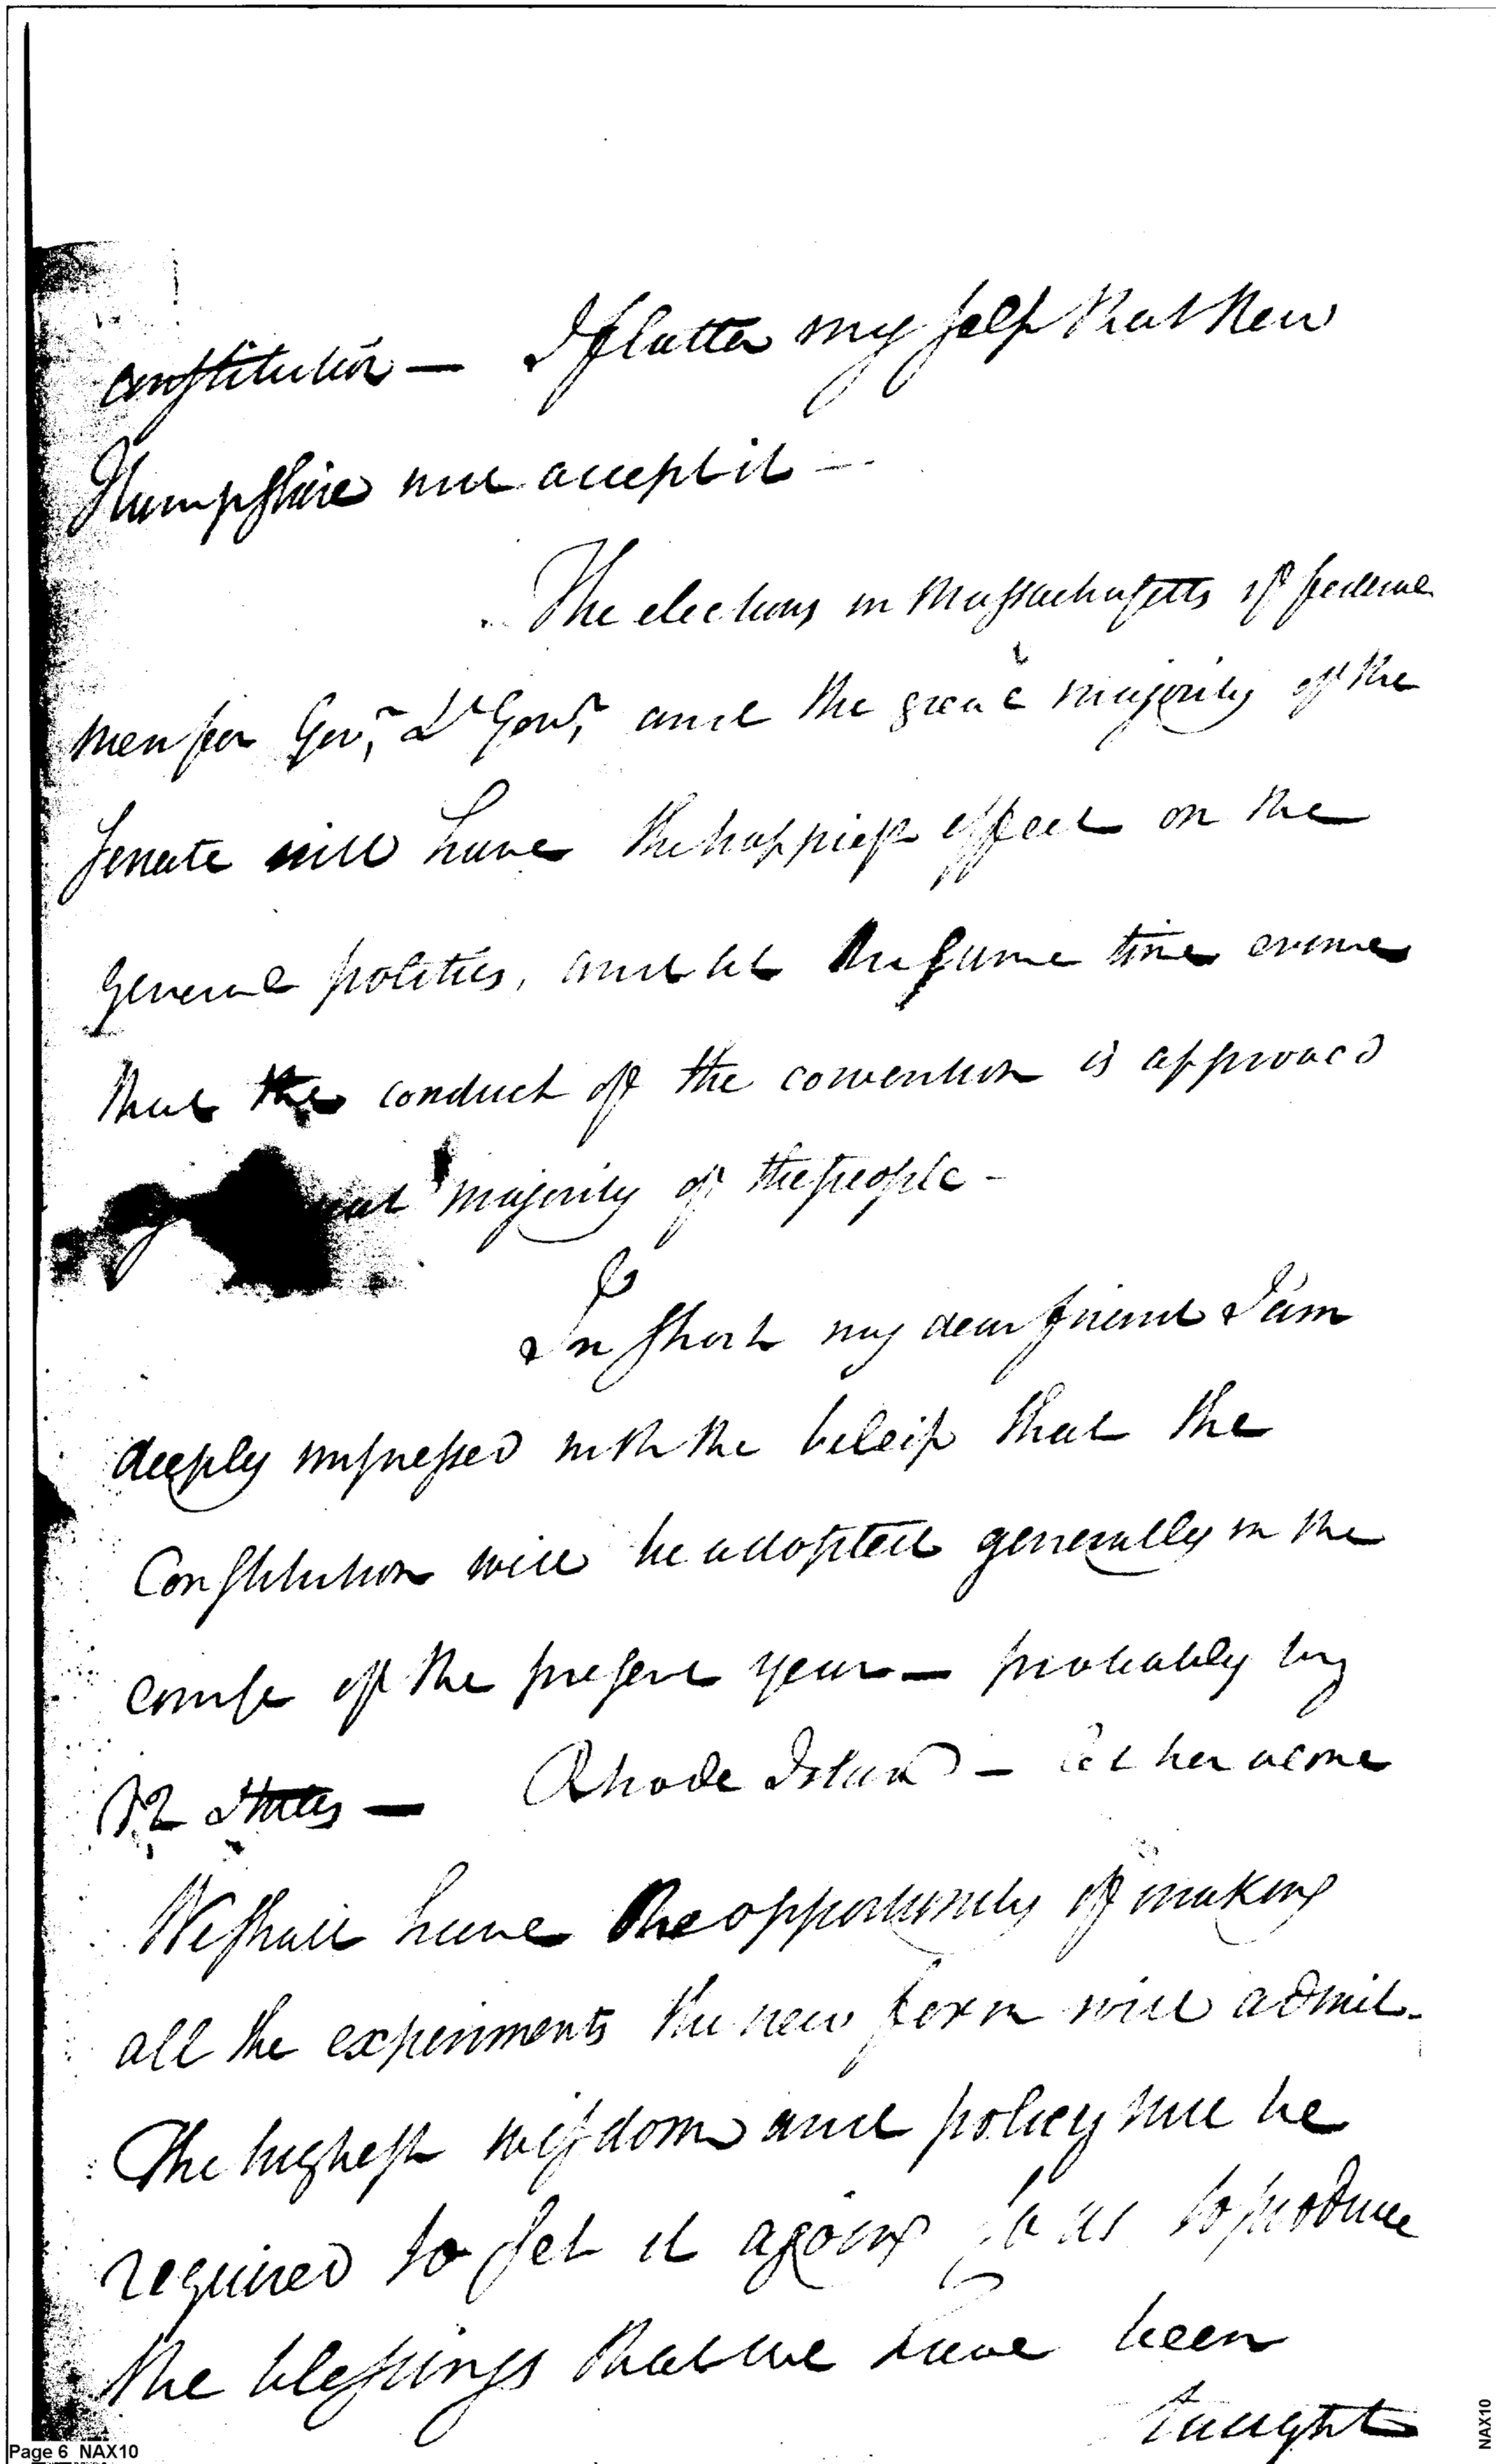 constitution — I flatter my self that New
Hampshire will accept it —
The elections in Massachusetts of federal
men for Govr, Lt Govr, and the great majority of the
Senate will have the happiest effect on the
general politics, and at the same time evince
that the conduct of the convention is approved
majority of the people —
In short my dear friend I am
deeply impressed with the beleif that the
Constitution will be adopted generally in the
course of the present year — probably by
12 States — Rhode Island — let her alone
We shall have the opportunity of making
all the experiments the new form will admit.
The highest wisdom and policy will be
required to set it agoing so as to produce
the blessings that we have been
taught
Page 6 NAX10
NAX10